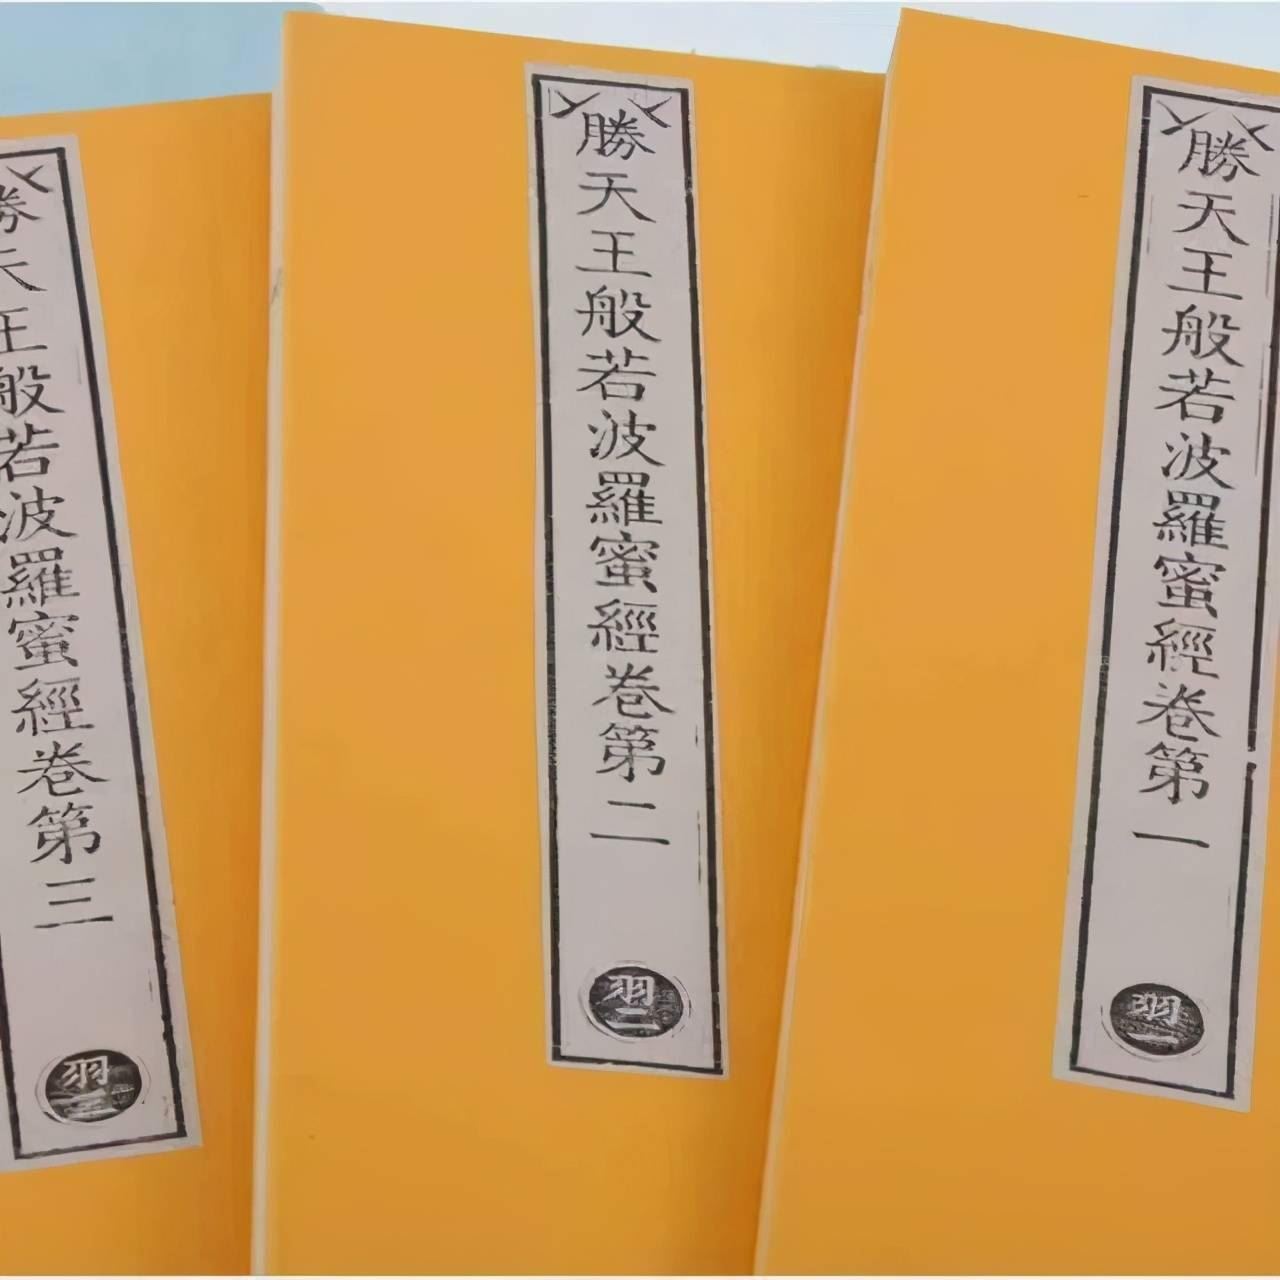 勝天王般若波羅蜜經卷第一
羽一
勝天王般若波羅蜜經卷第二
羽二
勝天王般若波羅蜜經卷第三
羽三